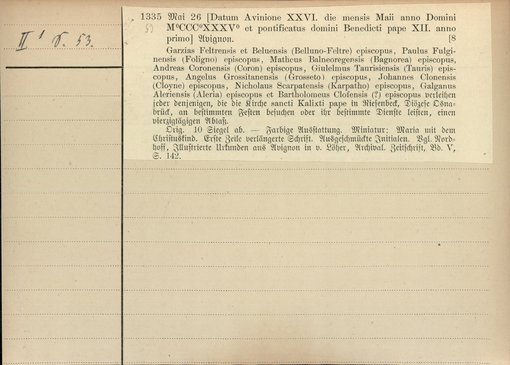 II¹ N. 53.
1335 Mai 26 [Datum Avinione XXVI. die mensis Maii anno Domini
M°CCC°XXXV° et pontificatus domini Benedicti pape XII. anno
primo] Avignon. [8
Garzias Feltrensis et Belunensis (Belluno-Feltre) episcopus, Paulus Fulgi-
nensis (Foligno) episcopus, Matheus Balneoregensis (Bagnorea) episcopus,
Andreas Coronensis (Coron) episcopus, Giulelmus Taurisiensis (Tauris) epis-
copus, Angelus Grossitanensis (Grosseto) episcopus, Johannes Clonensis
(Cloyne) episcopus, Nicholaus Scarpatensis (Karpatho) episcopus, Galganus
Aleriensis (Aleria) episcopus et Bartholomeus Clofensis (?) episcopus verleihen
jeder denjenigen, die die Kirche sancti Kalixti pape in Riesenbeck, Diözese Osna-
brück, an bestimmten Festen besuchen oder ihr bestimmte Dienste leisten, einen
vierzigtägigen Ablaß.
Orig. 10 Siegel ab. — Farbige Ausstattung. Miniatur: Maria mit dem
Christuskind. Erste Zeile verlängerte Schrift. Ausgeschmückte Initialen. Vgl. Nord-
hoff, Illustrierte Urkunden aus Avignon in v. Löher, Archival. Zeitschrift, Bd. V,
S. 142.